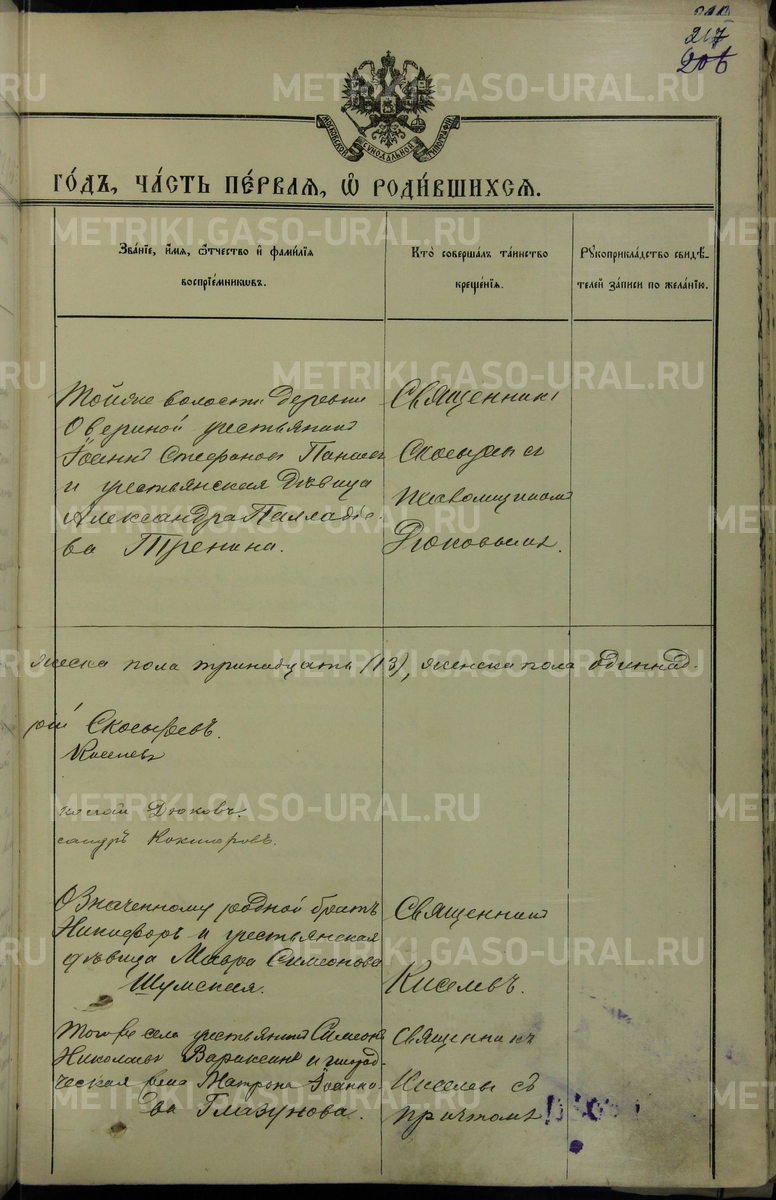 217
206
МОСКОВСКОЙ СѴНОДАЛЬНОЙ ТИПОГРАФІИ
ГО́ДЪ, ЧА́СТЬ ПЕ́РВАЯ, Ѽ РОДИ́ВШИХСЯ.
Зва́нїе, и́мя, ѻ́тчество и҆ фами́лїя
воспрїе́мникѡвъ.
Кто̀ соверша́лъ та́инство
креще́нїя.
Рꙋкоприкла́дство свидѣ́-
телей за́писи по жела́нїю.
Тойже волости деревни
Овериной крестьянинъ
Іоаннъ Стефановъ
и крестьянская дѣвица
Александра Палладіе-
ва Тренина.
Священникъ
Скосыревъ съ
псаломщикомъ
Дюковымъ.
мужеска пола тринадцать (13), женска пола одиннад-
рій Скосыревъ.
Киселевъ
колай Дюковъ.
сандръ Кокшаровъ.
Означенному родной братъ
Никифоръ и крестьянская
дѣвица Мавра Симеонова
Шумская.
Священникъ
Киселевъ.
Того же села крестьянинъ Симеонъ
Николаевъ Вараксинъ и
ческая жена Матрона Іоанно-
ва Глазунова.
Священникъ
Киселевъ съ
причтомъ
METRIKI.GASO-URAL.RU